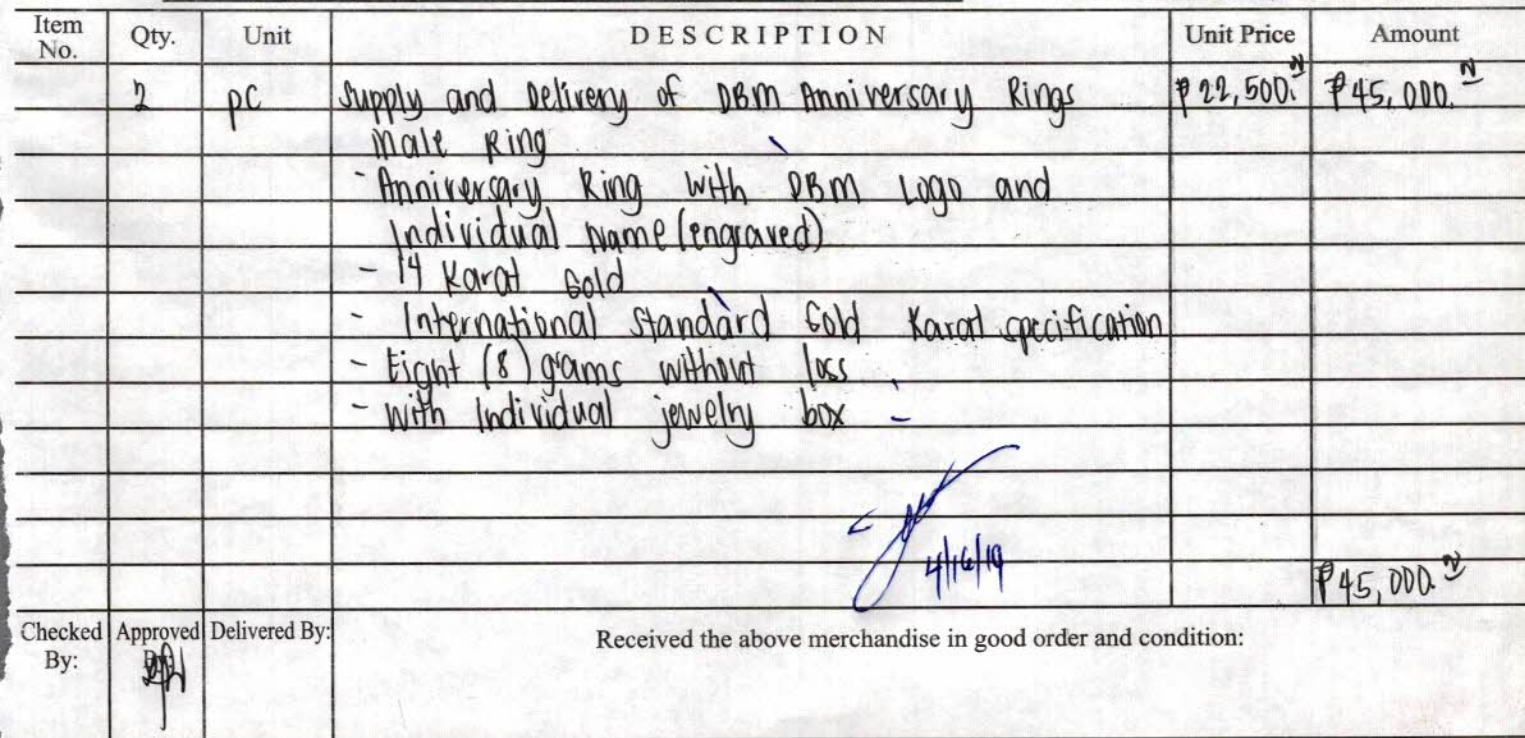 Item No. Qty. Unit DESCRIPTION Unit Price Amount
2 pc Supply and Delivery of DBM Anniversary Rings ₱22,500. ₱45,000.
Male Ring
- Anniversary Ring with DBM Logo and
Individual Name (engraved)
- 14 Karat Gold
- International Standard Gold Karat specification
- Eight (8) grams without loss
- with Individual jewelry box
4/16/19
₱45,000.
Checked By: Approved By: Delivered By: Received the above merchandise in good order and condition: